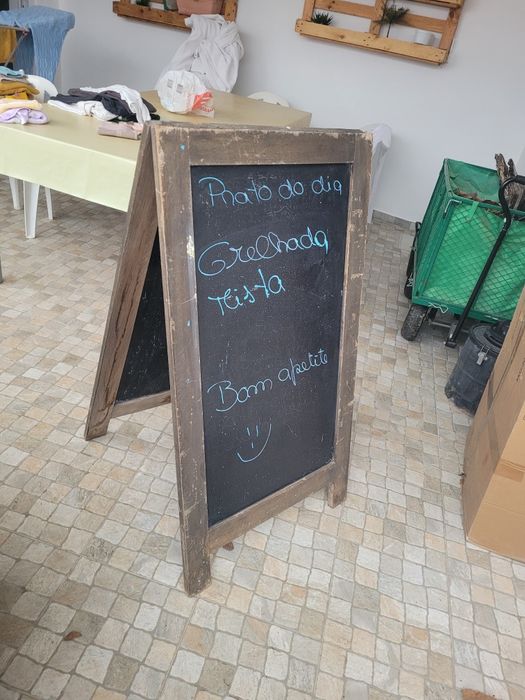 Prato do dia
Grelhada
Mista
Bom apetite